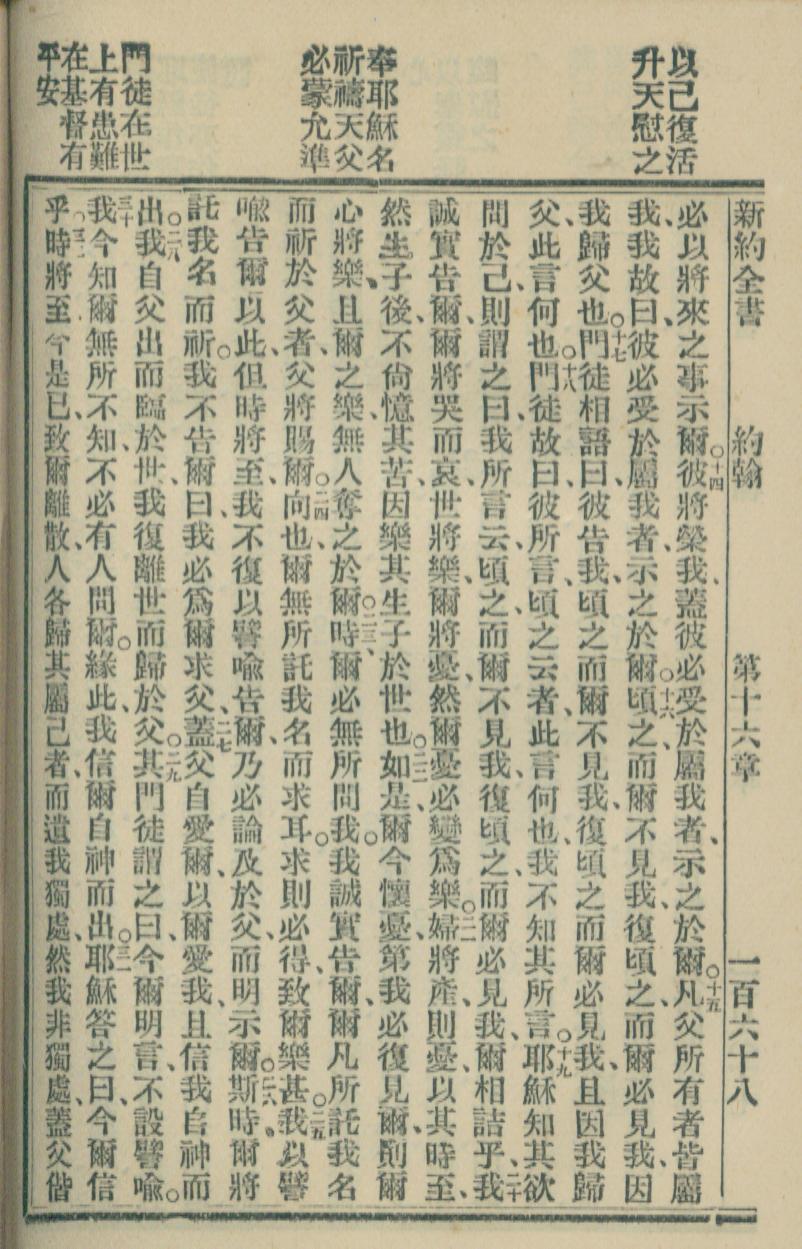 以己復活
升天慰之
奉耶穌名
祈禱天父
必蒙允準
門徒在世
上有患難
在基督有
平安
新約全書 約翰 第十六章 一百六十八
必以將來之事示爾、○十四彼將榮我、蓋彼必受於屬我者、示之於爾、○十五凡父所有者皆屬
我、我故曰、彼必受於屬我者、示之於爾、○十六頃之而爾不見我、復頃之而爾必見我、因
我歸父也、○十七門徒相語曰、彼告我、頃之而爾不見我、復頃之而爾必見我、且因我歸
父、此言何也、○十八門徒故曰、彼所言、頃之云者、此言何也、我不知其所言、○十九耶穌知其欲
問於己、則謂之曰、我所言云、頃之而爾不見我、復頃之而爾必見我、爾相詰乎、二十我
誠實告爾、爾將哭而哀、世將樂、爾將憂、然爾憂必變爲樂、○二一婦將產、則憂、以其時至、
然生子後、不尙憶其苦、因樂其生子於世也、○二二如是、爾今懷憂、第我必復見爾、則爾
心將樂、且爾之樂無人奪之於爾、○二三時爾必無所問我、○我誠實告爾、爾凡所託我名
而祈於父者、父將賜爾、○二四向也、爾無所託我名而求耳、○求則必得、致爾樂甚、○二五我以譬
喩告爾以此、但時將至、我不復以譬喩告爾、乃必論及於父、而明示爾、○二六斯時爾將
託我名而祈、○我不告爾曰、我必爲爾求父、二七蓋父自愛爾、以爾愛我、且信我自神而
出、○二八我自父出而臨於世、我復離世而歸於父、○二九其門徒謂之曰、今爾明言、不設譬喩、○
三十我今知爾無所不知、不必有人問爾、○緣此、我信爾自神而出、○三一耶穌答之曰、今爾信
乎、○三二時將至、今是已、致爾離散、人各歸其屬己者、而遺我獨處、然我非獨處、蓋父偕